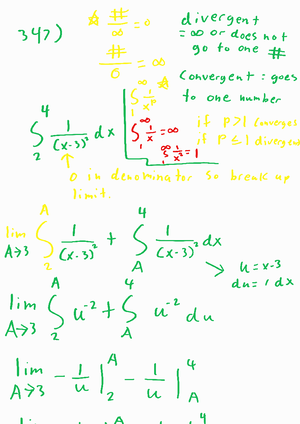 347)
☆ #/∞ = 0
#/0 = ∞
divergent
= ∞ or does not
go to one #
Convergent: goes
to one number
∫₂⁴ 1/(x-3)² dx
∫₁^∞ 1/xᵖ
if P>1 converges
∫₁^∞ 1/x = ∞
if P≤1 divergent
∫₁^∞ 1/x² = 1
0 in denominator so break up
limit.
lim A→3 ∫₂^A 1/(x-3)² + ∫_A⁴ 1/(x-3)² dx
u = x-3
du = 1 dx
lim A→3 ∫₂^A u⁻² + ∫_A⁴ u⁻² du
lim A→3 -1/u |₂^A - 1/u |_A⁴